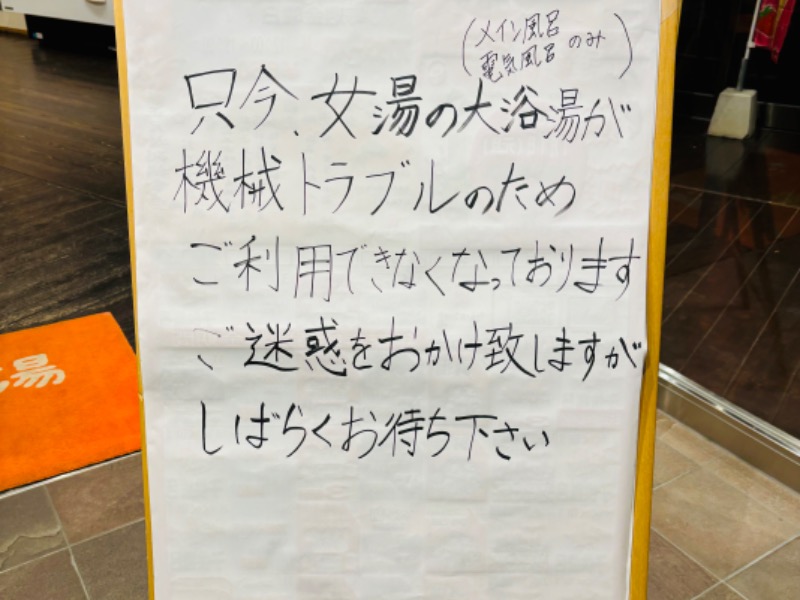 (メイン風呂
電気風呂 のみ)
只今、女湯の大浴湯が
機械トラブルのため
ご利用できなくなっております
ご迷惑をおかけ致しますが
しばらくお待ち下さい
湯